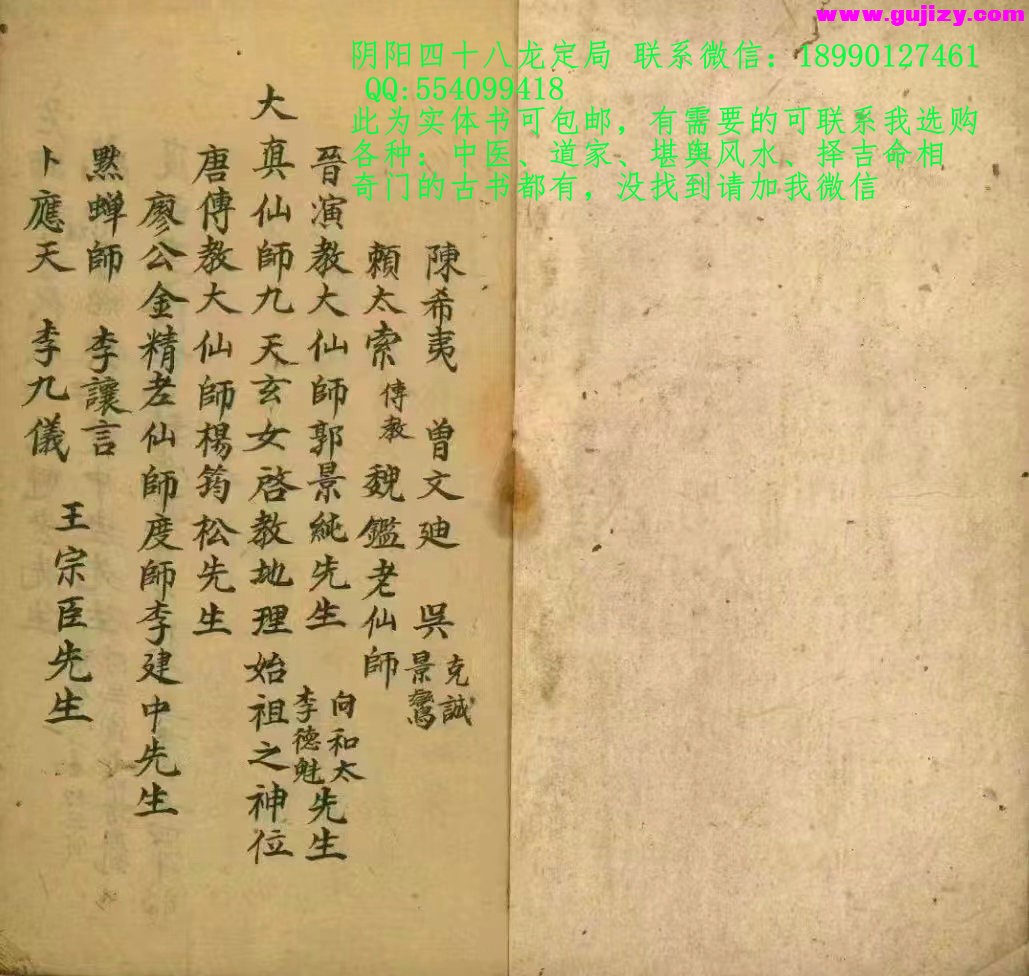 www.gujizy.com
阴阳四十八龙定局 联系微信：18990127461
QQ:554099418
此为实体书可包邮，有需要的可联系我选购
各种：中医、道家、堪舆风水、择吉命相
奇门的古书都有，没找到请加我微信
陳希夷 曾文廸 吳克誠景鸞
賴太索傳教魏鑑老仙師
晉演教大仙師郭景純先生向和太李德魁先生
大真仙師九天玄女啓教地理始祖之神位
唐傳教大仙師楊筠松先生
廖公金精老仙師度師李建中先生
黙蝉師 李讓言
王宗臣先生
卜應天 李九儀